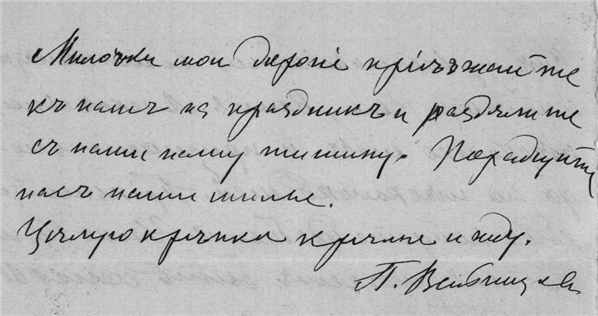 Милочки мои дорогіе пріѣзжайте
къ намъ на праздникъ и раздѣлите
съ нами нашу тишину. Порадуйте
насъ нашим
Цѣлую крѣпко крѣпко и жду.
П.